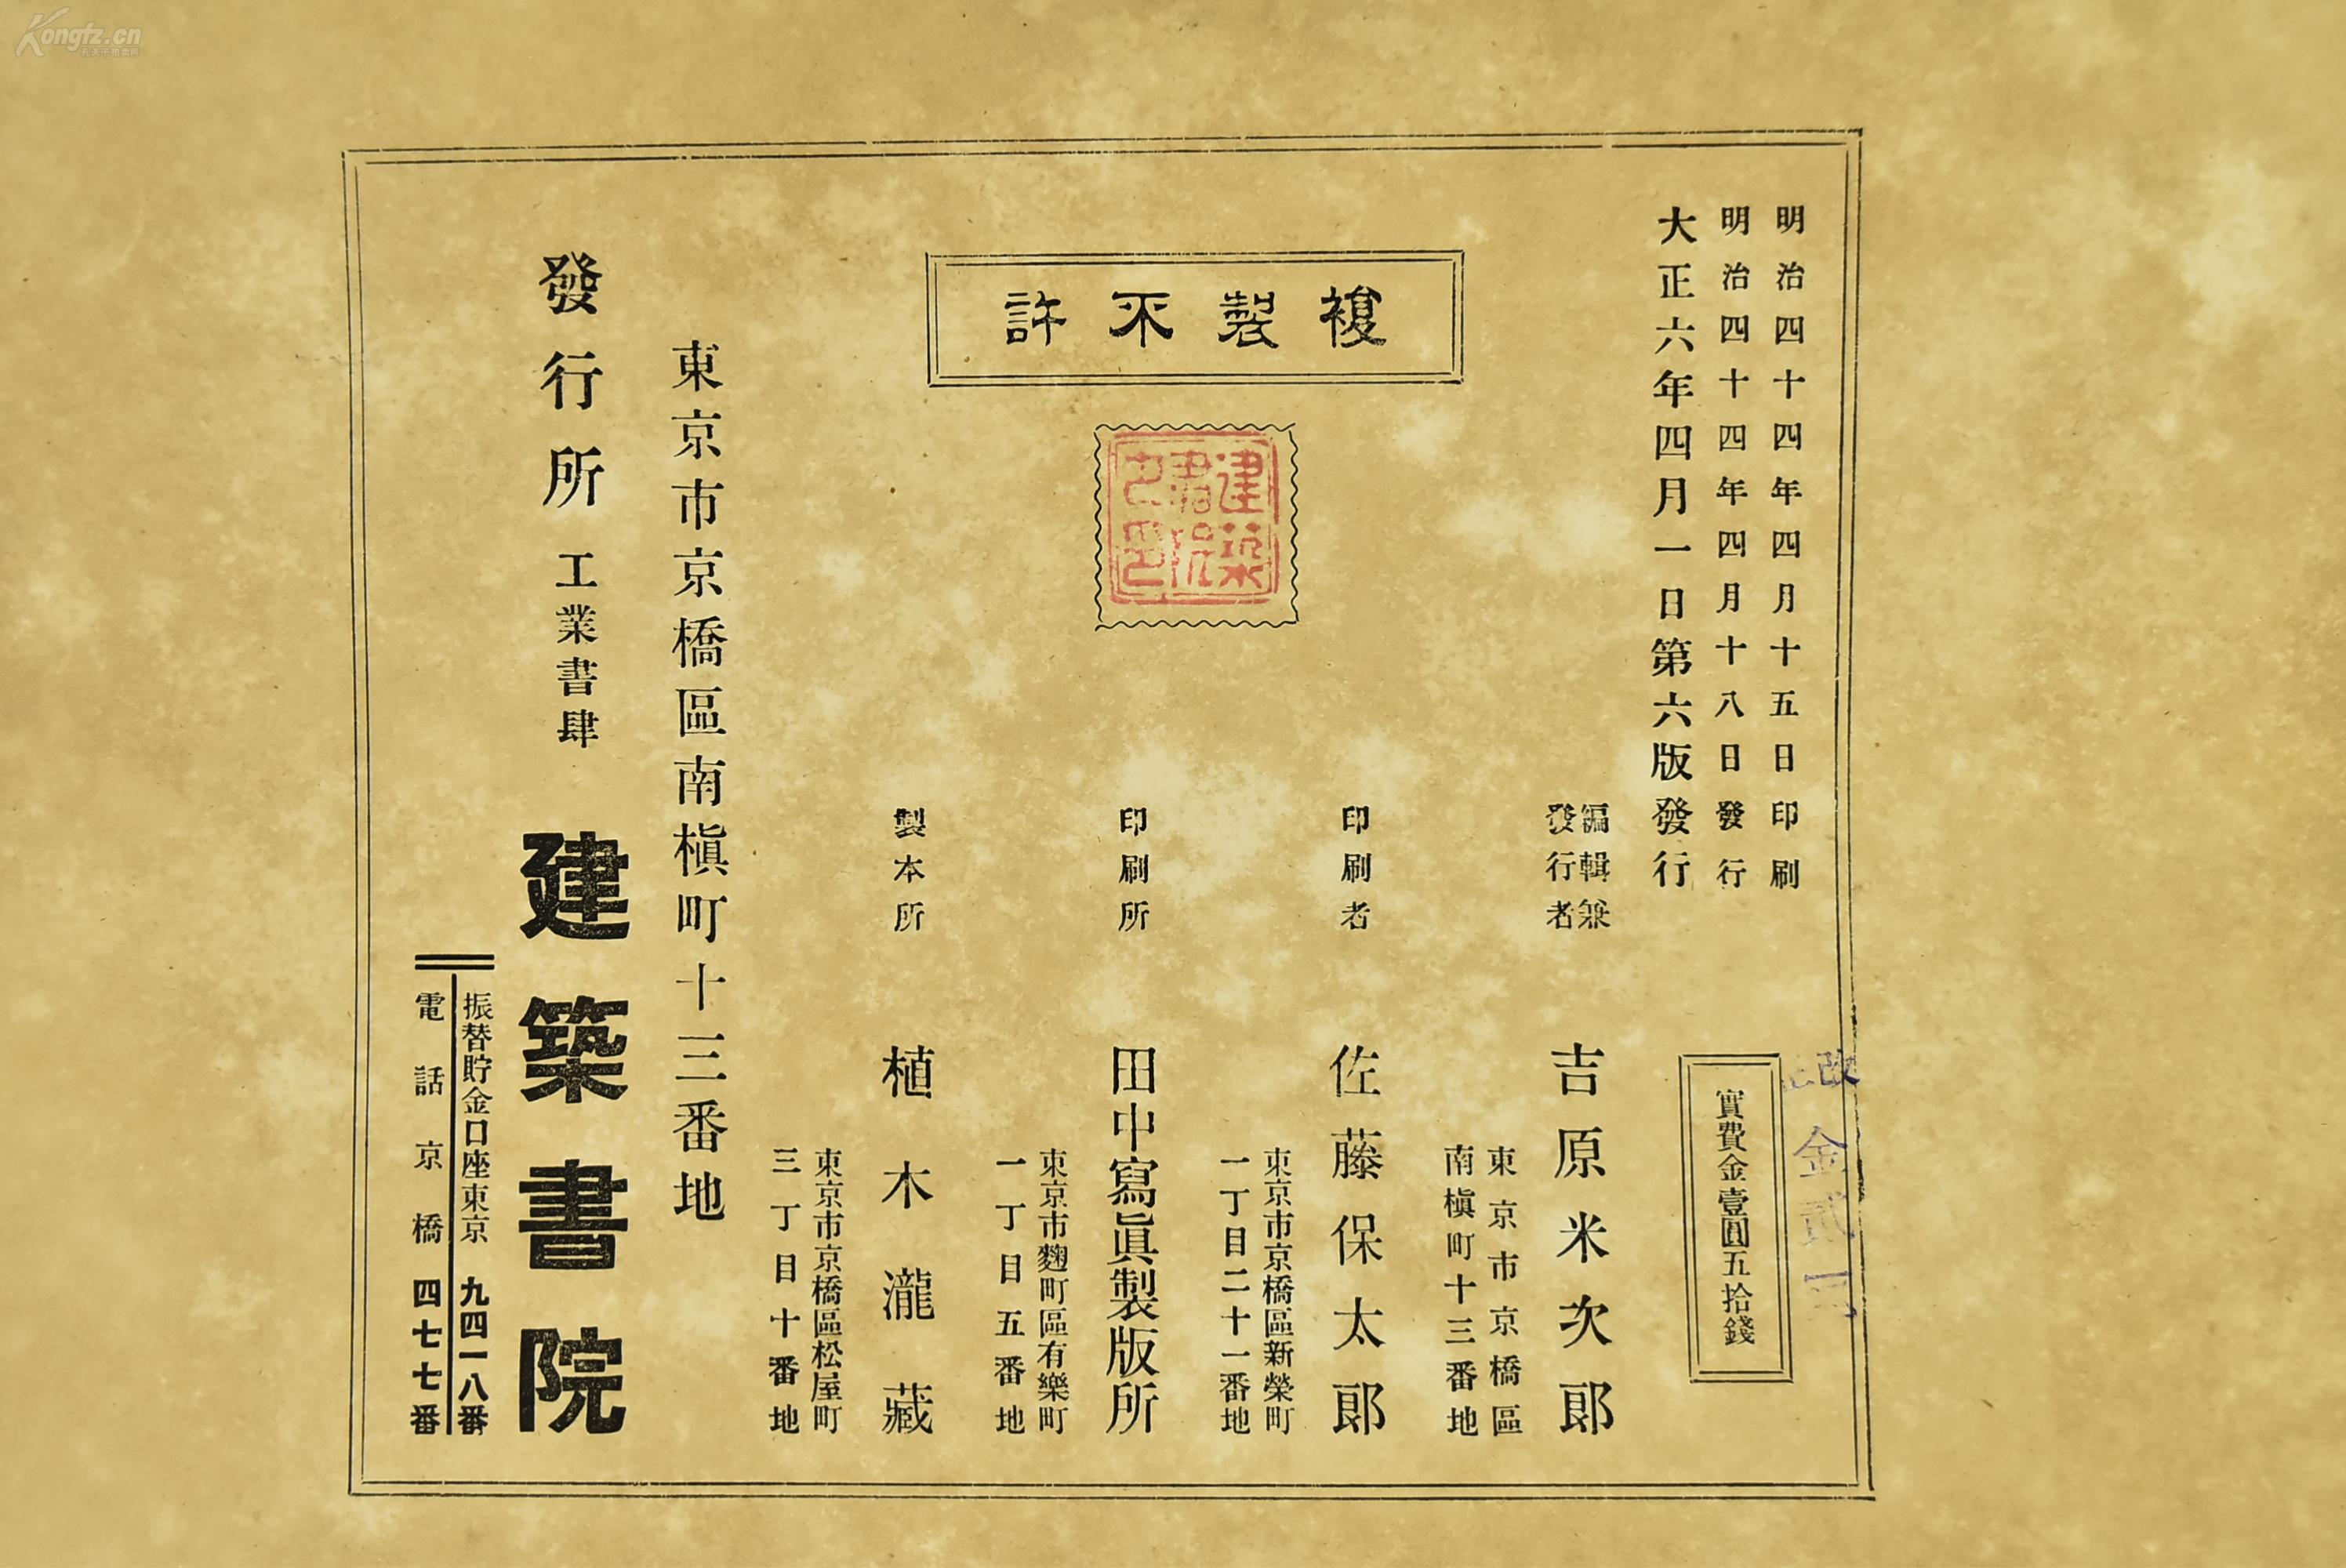 明治四十四年四月十五日印刷
明治四十四年四月十八日發行
大正六年四月一日第六版發行
實費金壹圓五拾錢
改正
金貳
複製不許
建築
書院
之印
編輯兼
發行者
吉原米次郎
東京市京橋區
南槇町十三番地
印刷者
佐藤保太郎
東京市京橋區新榮町
一丁目二十一番地
印刷所
田中寫眞製版所
東京市麴町區有樂町
一丁目五番地
製本所
植木瀧藏
東京市京橋區松屋町
三丁目十番地
東京市京橋區南槇町十三番地
發行所 工業書肆 建築書院
振替貯金口座東京 九四一八番
電話京橋 四七七番
Kongfz.cn